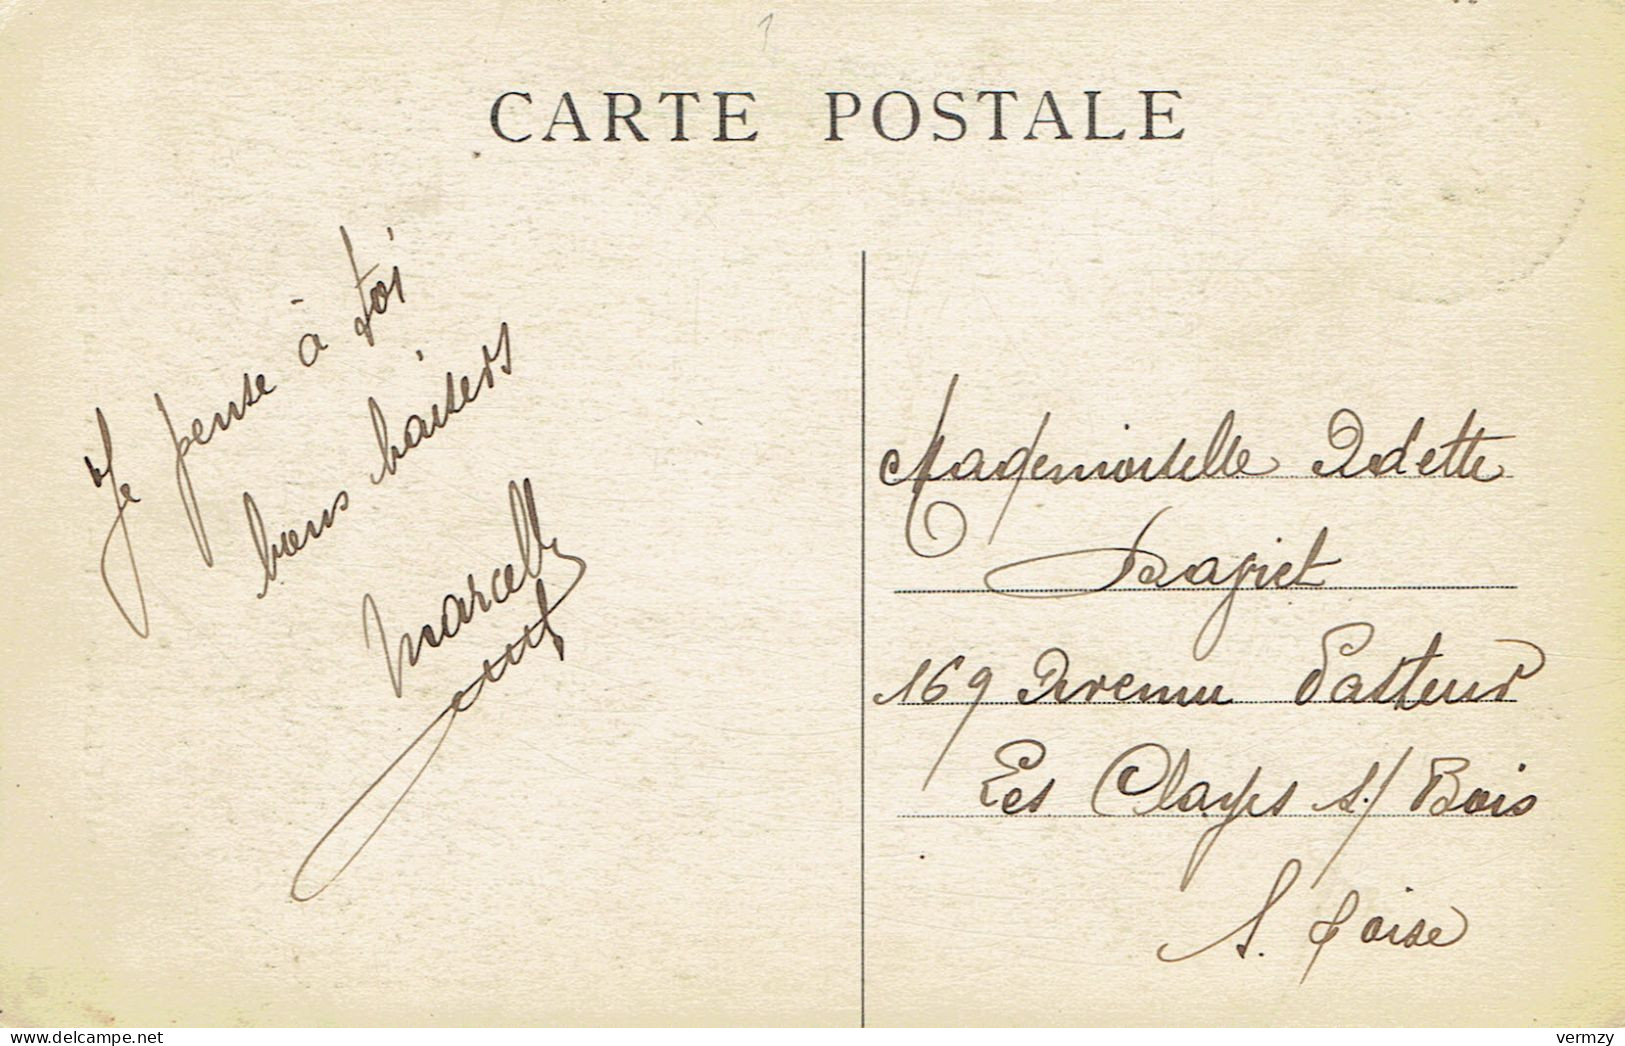 CARTE POSTALE
Je pense à toi
bons baisers
Marcelle
Mademoiselle Odette
169 Avenue Pasteur
Les Clayes s/ Bois
S. & oise
vermzy